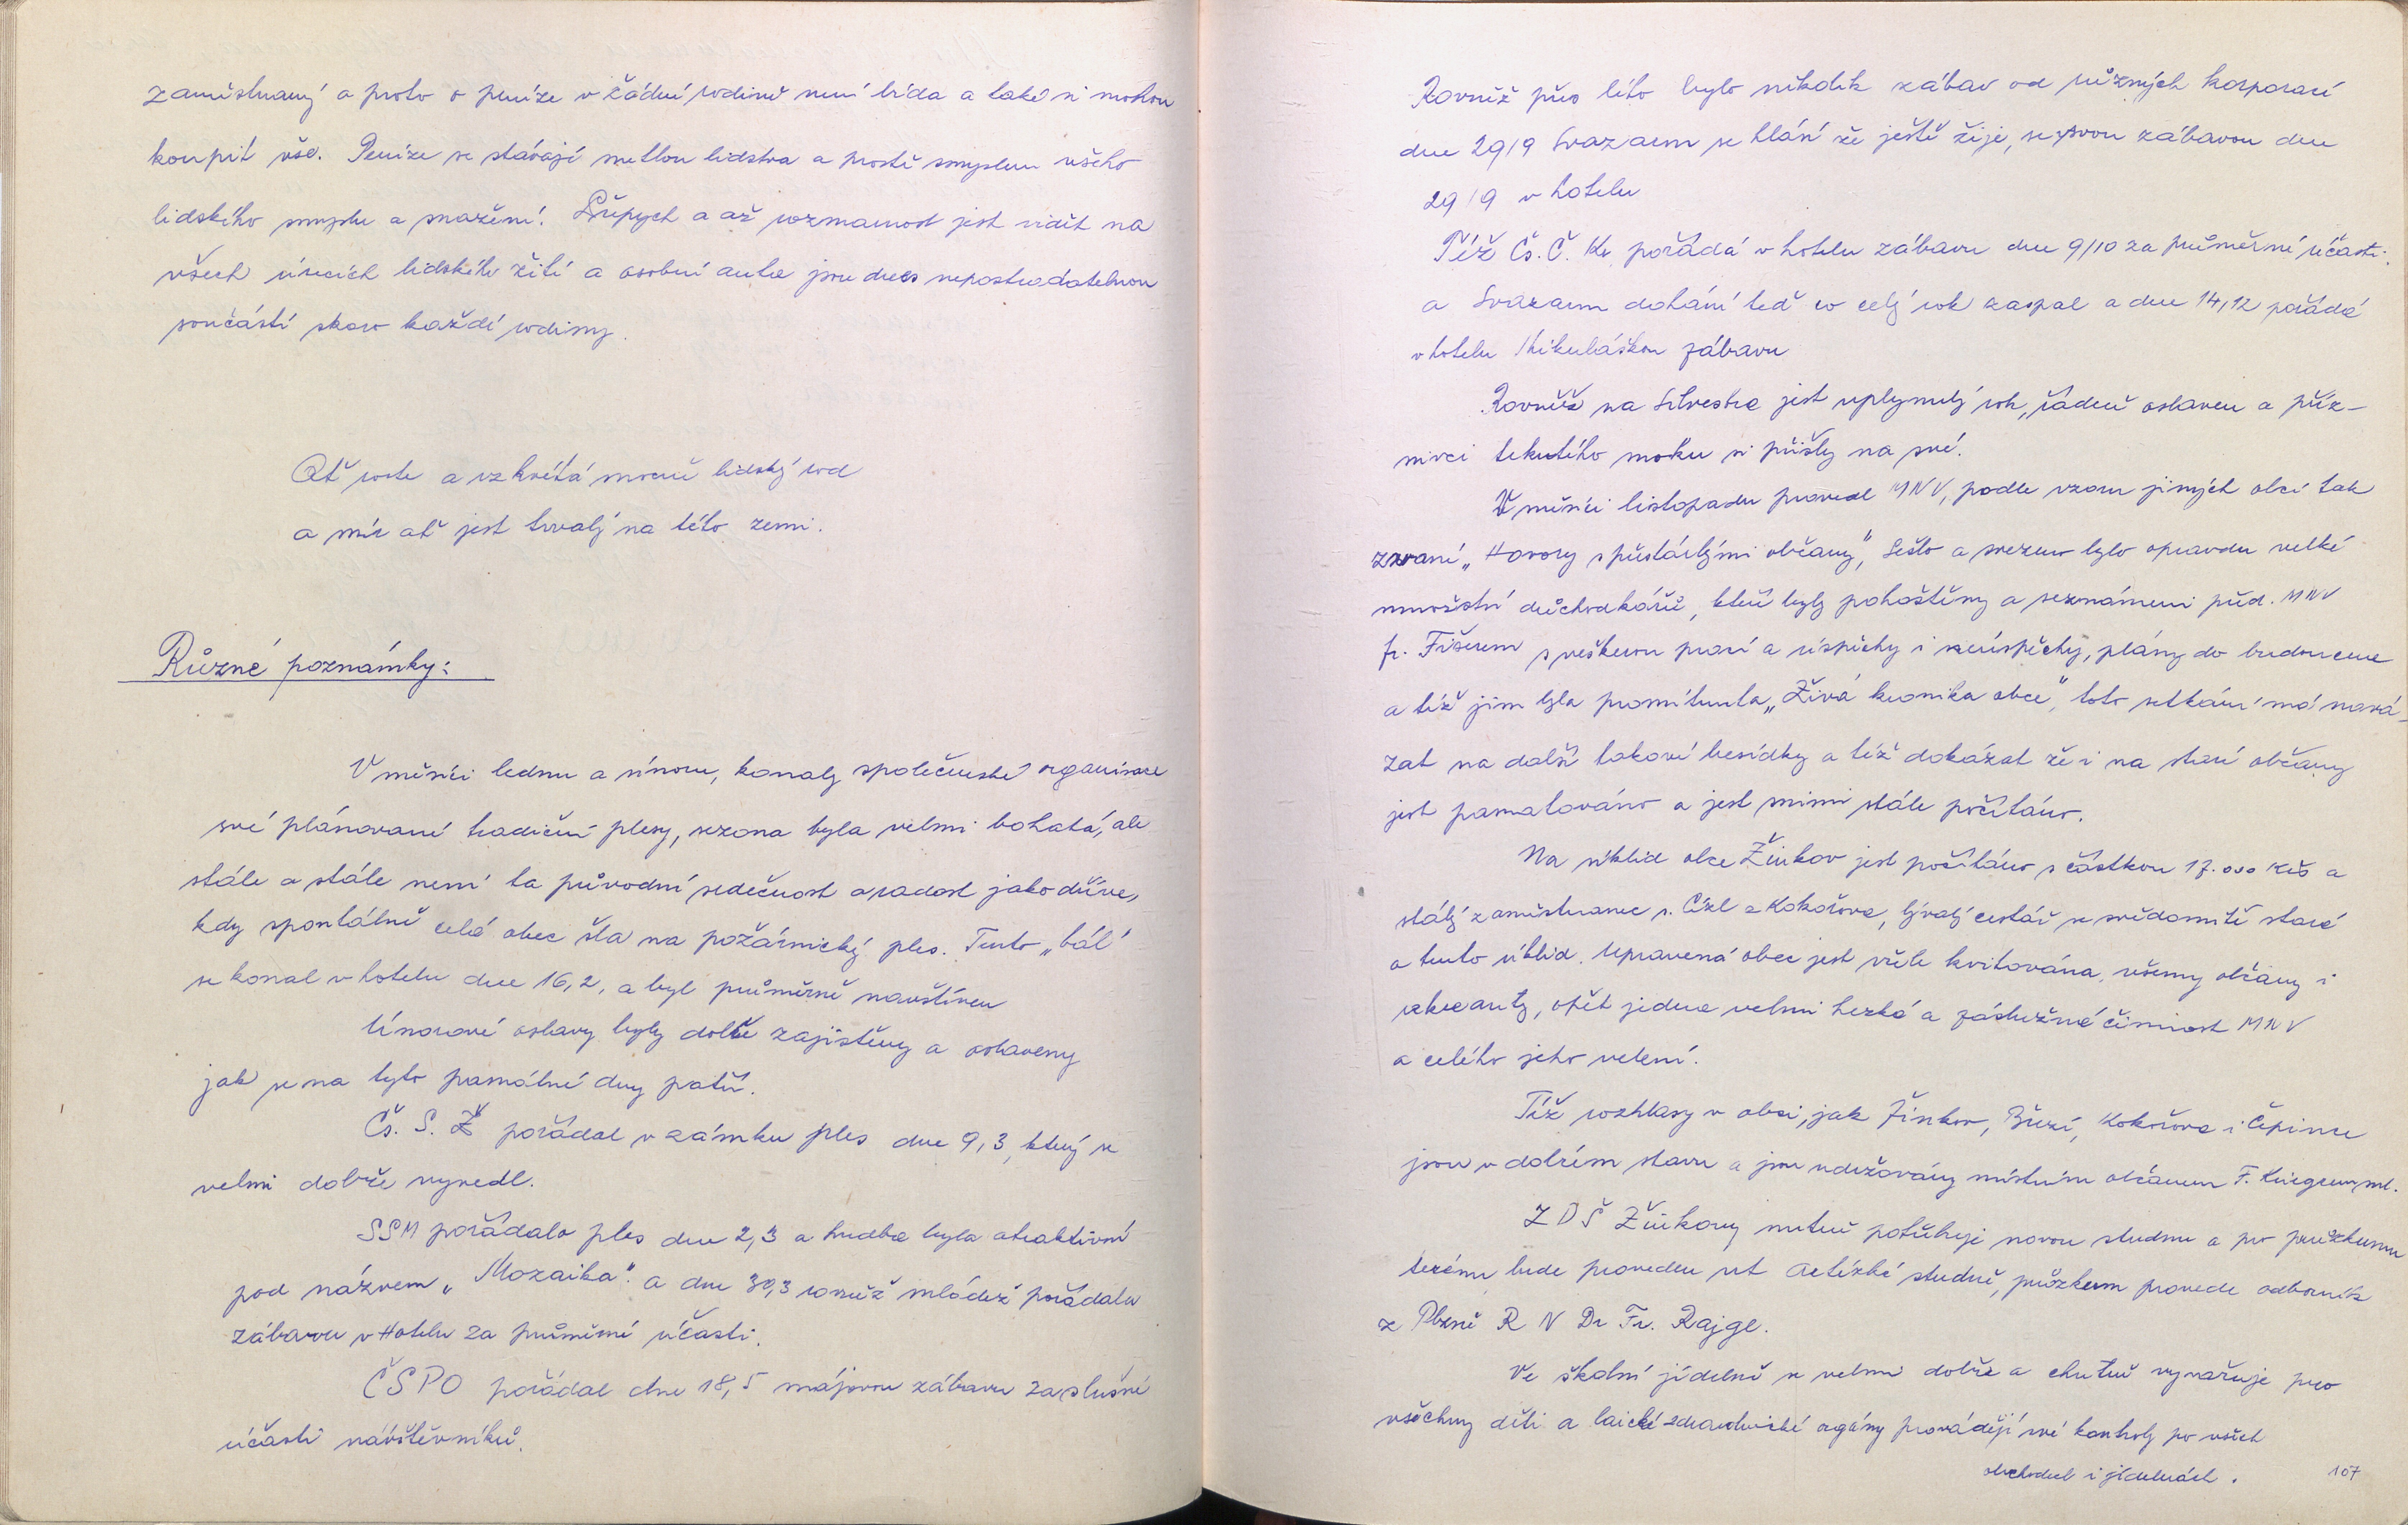 zaměstnaný a proto o peníze v žádné rodině není bída a také si mohou
koupit vše. Peníze se stávají metlou lidstva a prostě smyslem všeho
lidského smyslu a snažení. Přepych a až rozmarnost jest vidět na
všech úsecích lidského žití a osobní auta jsou dnes nepostradatelnou
součástí skoro každé rodiny.
Ať roste a vzkvétá mocně lidský rod
a mír ať jest trvalý na této zemi.
Různé poznámky:
V měsíci lednu a únoru, konaly společenské organisace
své plánované tradiční plesy, sezona byla velmi bohatá, ale
stále a stále není ta původní srdečnost a radost jako dříve,
kdy spontálně celá obec šla na požárnický ples. Tento „bál"
se konal v hotelu dne 16,2, a byl průměrně navštíven
Únorové oslavy byly dobře zajištěny a oslaveny
jak se na tyto památné dny patří.
Čs. S. Ž pořádal v zámku ples dne 9,3, který se
velmi dobře vyvedl.
SSM pořádalo ples dne 2,3 a hudba byla atraktivní
pod názvem „Mozaika". a dne 30,3 rovněž mládež pořádala
zábavu v Hotelu za průměrné účasti.
ČSPO pořádal dne 18,5 májovou zábavu za slušné
účasti návštěvníků.
Rovněž přes léto bylo několik zábav od různých korporací
dne 29/9 Svazarm se hlásí že ještě žije, se svou zábavou dne
29/9 v hotelu
Též Čs. Č. Kř pořádá v hotelu zábavu dne 9/10 za průměrné účasti.
a Svazarm dohání teď co celý rok zaspal a dne 14,12 pořádá
v hotelu Mikulášskou zábavu
Rovněž na Silvestra jest uplynulý rok, řádně oslaven a příz-
nivci tekutého moku si přišly na své.
V měsíci listopadu provedl MNV, podle vzoru jiných obcí tak
zvané „Hovory s přestárlými občany", Sešlo a svezeno bylo opravdu velké
množství důchodkářů, kteří byly pohoštěny a seznámeni před. MNV
fr. Fišerem s veškerou prací a úspěchy i neúspěchy, plány do budoucna
a též jim byla promítnuta „Živá kronika obce", toto setkání má navá-
zat na další takové besídky a též dokázat že i na staré občany
jest pamatováno a jest snimi stále počítáno.
Na úklid obce Žinkov jest počítáno s částkou 17.000 Kčs a
stálý zaměstnanec s. Cízl z Kokořova, bývalý cestář se svědomitě stará
o tento úklid. Upravená obec jest vřele kvitována, všemy občany i
rekreanty, opět jedna velmi hezká a záslužná činnost MNV
a celého jeho vedení.
Též rozhlasy v obci, jak Žinkov, Březí, Kokořova i Čepince
jsou v dobrém stavu a jsou udržovány místním občanem F. Kriegrem, ml.
ZDŠ Žinkovy nutně potřebuje novou studnu a po průzkumu
terénu bude proveden vrt Artézké studně, průzkum provede odborník
z Plzně R N Dr Fr. Rajgl.
Ve školní jídelně se velmi dobře a chutně vyvařuje pro
všechny děti a laické zdravotnické orgány provádějí své kontroly po všech
obchodech i jídelnách.
107